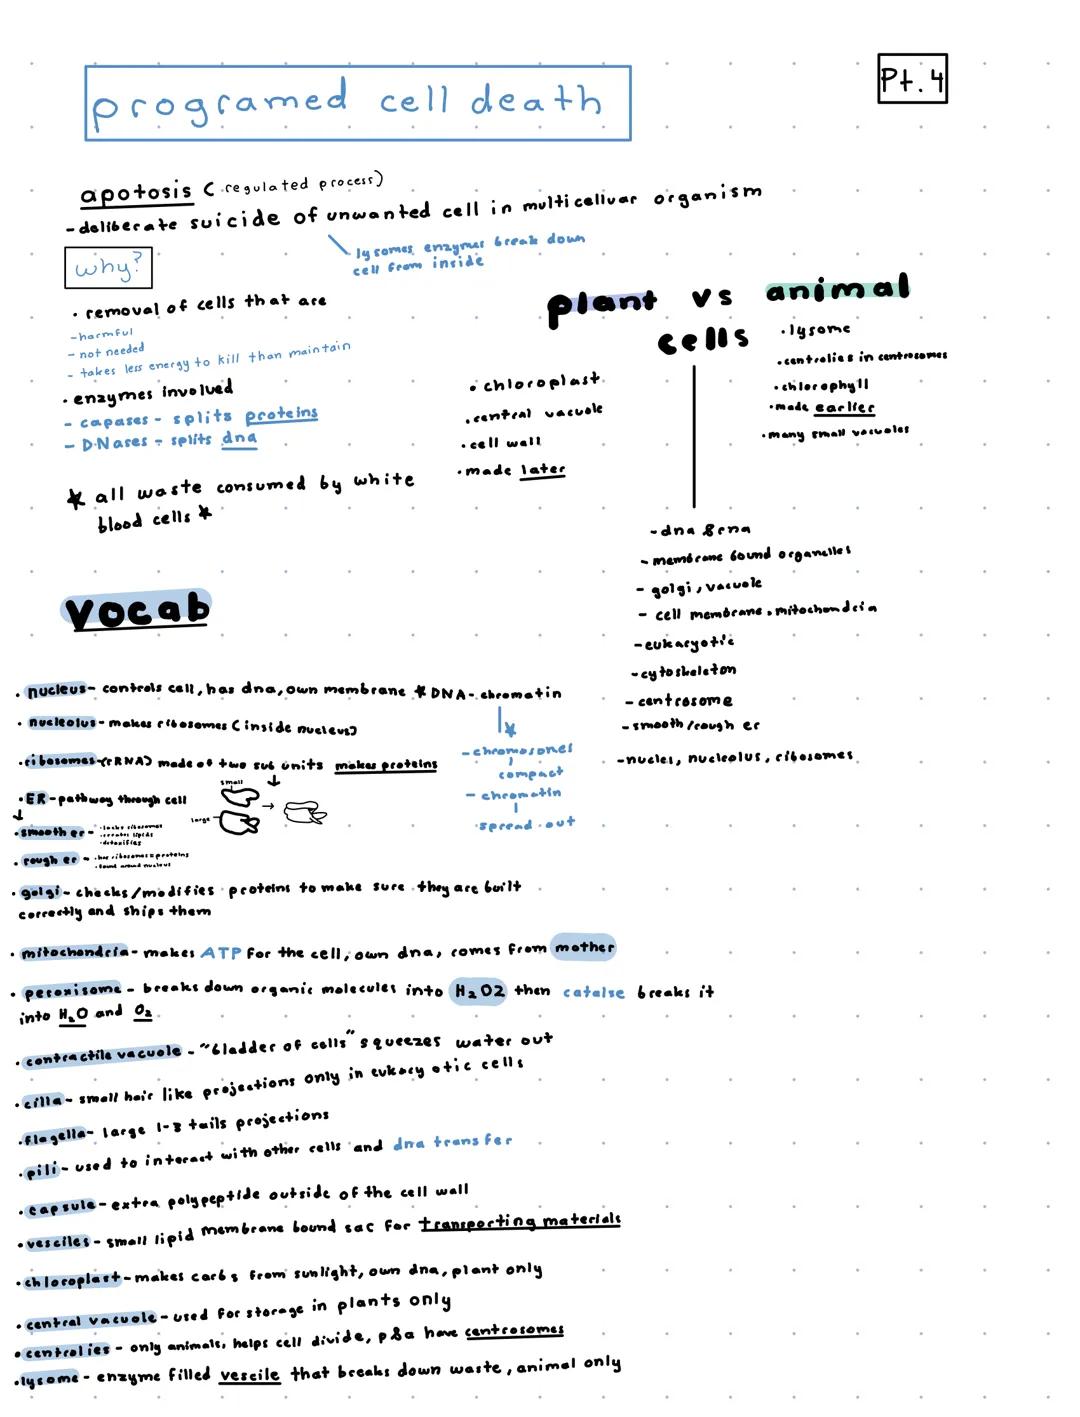 Pt. 4
programed cell death
apotosis ( regulated process)
- deliberate suicide of unwanted cell in multicelluar organism
lysomes enzymes break down
cell from inside
why?
• removal of cells that are
- harmful
- not needed
- takes less energy to kill than maintain
• enzymes involved
- capases - splits proteins
- DNases - splits dna
* all waste consumed by white
blood cells *
plant vs animal
cells
• chloroplast
• central vacuole
• cell wall
• made later
• lysome
• centrolies in centrosomes
• chlorophyll
• made earlier
• many small vacuoles
- dna & rna
- membrane bound organelles
- golgi, vacuole
- cell membrane, mitochondria
- eukaryotic
- cytoskeleton
- centrosome
- smooth/rough er
- nuclei, nucleolus, ribosomes
Vocab
• nucleus - controls cell, has dna, own membrane * DNA - chromatin
- chromosones
compact
- chromatin
spread out
• nucleolus - makes ribosomes (inside nucleus)
• ribosomes - (rRNA) made of two sub units makes proteins
small
large
• ER - pathway through cell
• smooth er - • lacks ribosomes
• creates lipids
• detoxifies
• rough er - • has ribosomes = proteins
• found around nucleus
• golgi - checks/modifies proteins to make sure they are built
correctly and ships them
• mitochondria - makes ATP for the cell, own dna, comes from mother
• peroxisome - breaks down organic molecules into H₂O2 then catalse breaks it
into H₂O and O₂
• contractile vacuole - "bladder of cells" squeezes water out
• cilla - small hair like projections only in eukaryotic cells
• flagella - large 1-3 tails projections
• pili - used to interact with other cells and dna transfer
• capsule - extra polypeptide outside of the cell wall
• vesciles - small lipid membrane bound sac for transporting materials
• chloroplast - makes carbs from sunlight, own dna, plant only
• central vacuole - used for storage in plants only
• centrolies - only animals, helps cell divide, p&a have centrosomes
• lysome - enzyme filled vescile that breaks down waste, animal only